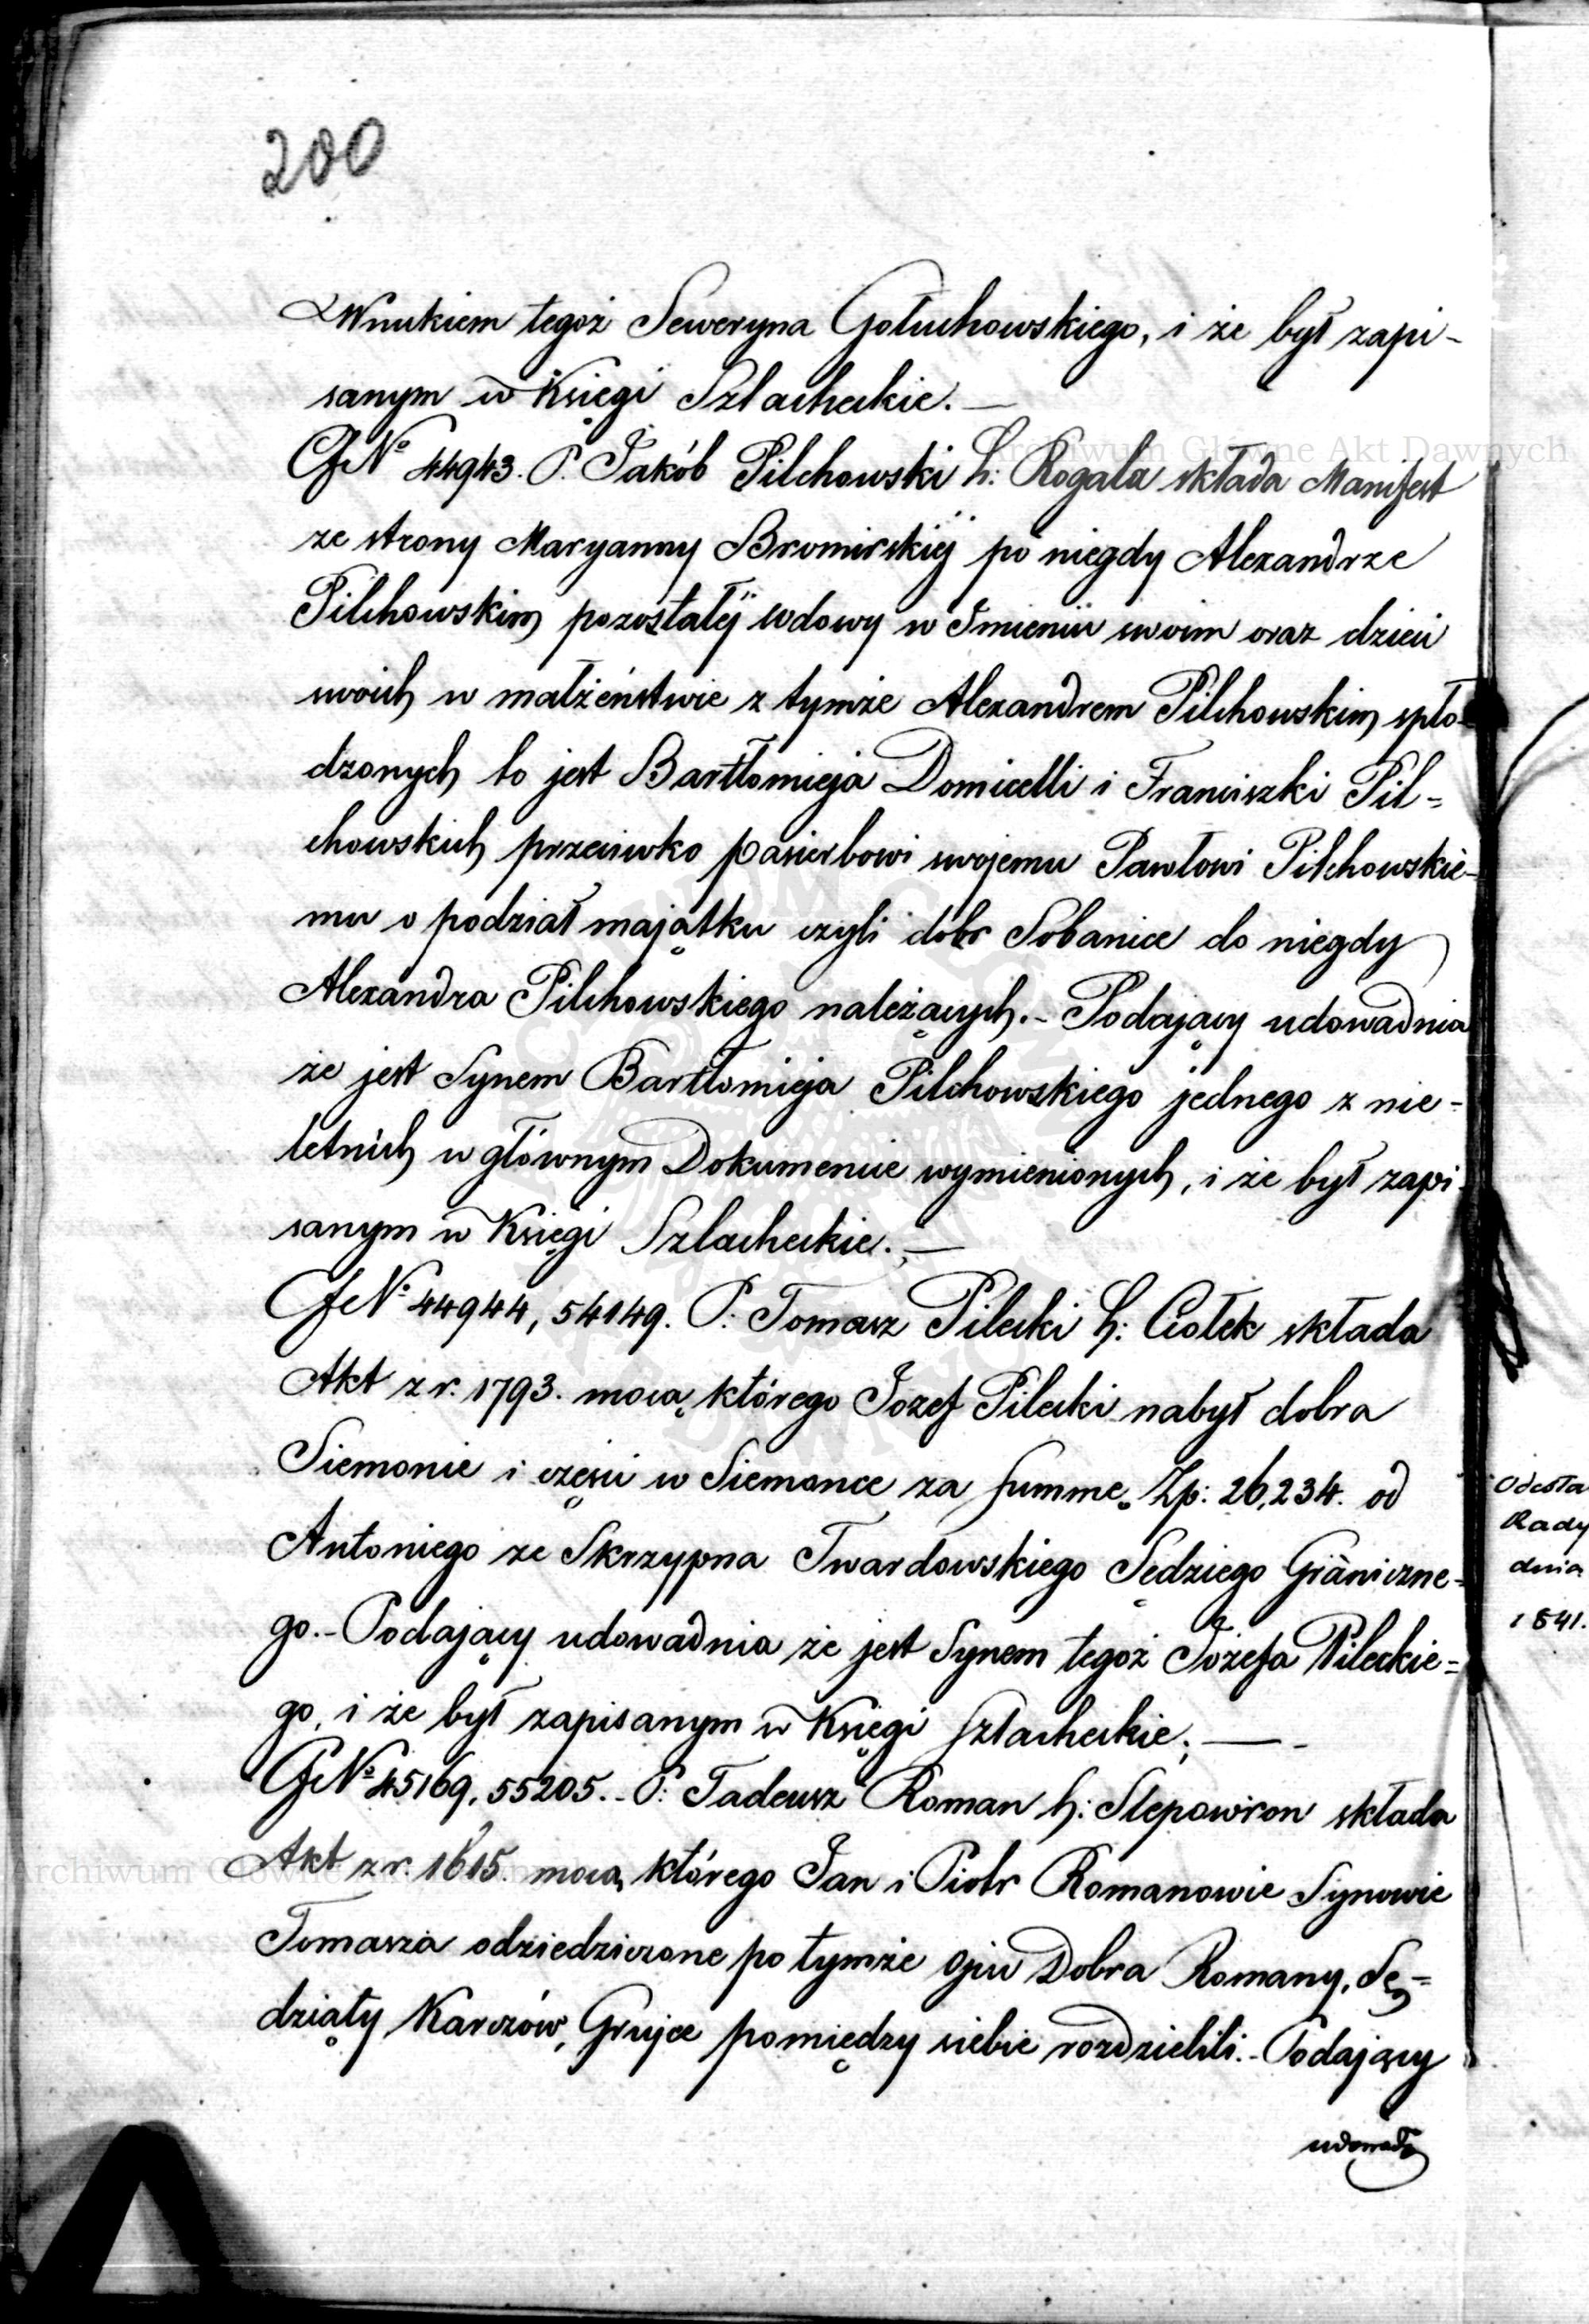 200
Wnukiem tegoż Seweryna Gołuchowskiego, i że był zapi-
sanym w Księgi Szlacheckie. —
Archiwum Główne Akt Dawnych
GNo 44943. P. Jakób Pilchowski h: Rogala składa Manifest
ze strony Maryanny Bromirskiéj po niegdy Alexandrze
Pilchowskim pozostałéj wdowy w Imieniu swoim oraz dzieci
swoich w małżeństwie z tymże Alexandrem Pilchowskim spło-
dzonych to jest Bartłomieja Domicelli i Franciszki Pil=
chowskich przeciwko pasierbowi swojemu Pawłowi Pilchowskie-
mu o podział majątku czyli dóbr Sobanice do niegdy
Alexandra Pilchowskiego należących. - Podający udowadnia
że jest Synem Bartłomieja Pilchowskiego jednego z nie-
letnich w głównym Dokumencie wymienionych, i że był zapi-
sanym w Księgi Szlacheckie. —
GNo 44944, 54149. P: Tomasz Pilecki h: Ciołek składa
Akt z r. 1793. mocą którego Jozef Pilecki nabył dobra
Siemonie i części w Siemonce za summę Zp: 26,234. od
Antoniego ze Skrzypna Twardowskiego Sędziego Graniczne=
go. - Podający udowadnia że jest Synem tegoż Józefa Pileckie=
go, i że był zapisanym w Księgi szlacheckie. — -
GNo 45169, 55205. - P: Tadeusz Roman h: Slepowron składa
Akt z r. 1615. mocą którego Jan i Piotr Romanowie Synowie
Tomasza odziedziczone po tymże Ojcu Dobra Romany, Sę=
dziąty Karczów, Grujce pomiędzy siebie rozdzielili. - Podający
Odesła
Rady
dnia
1841.